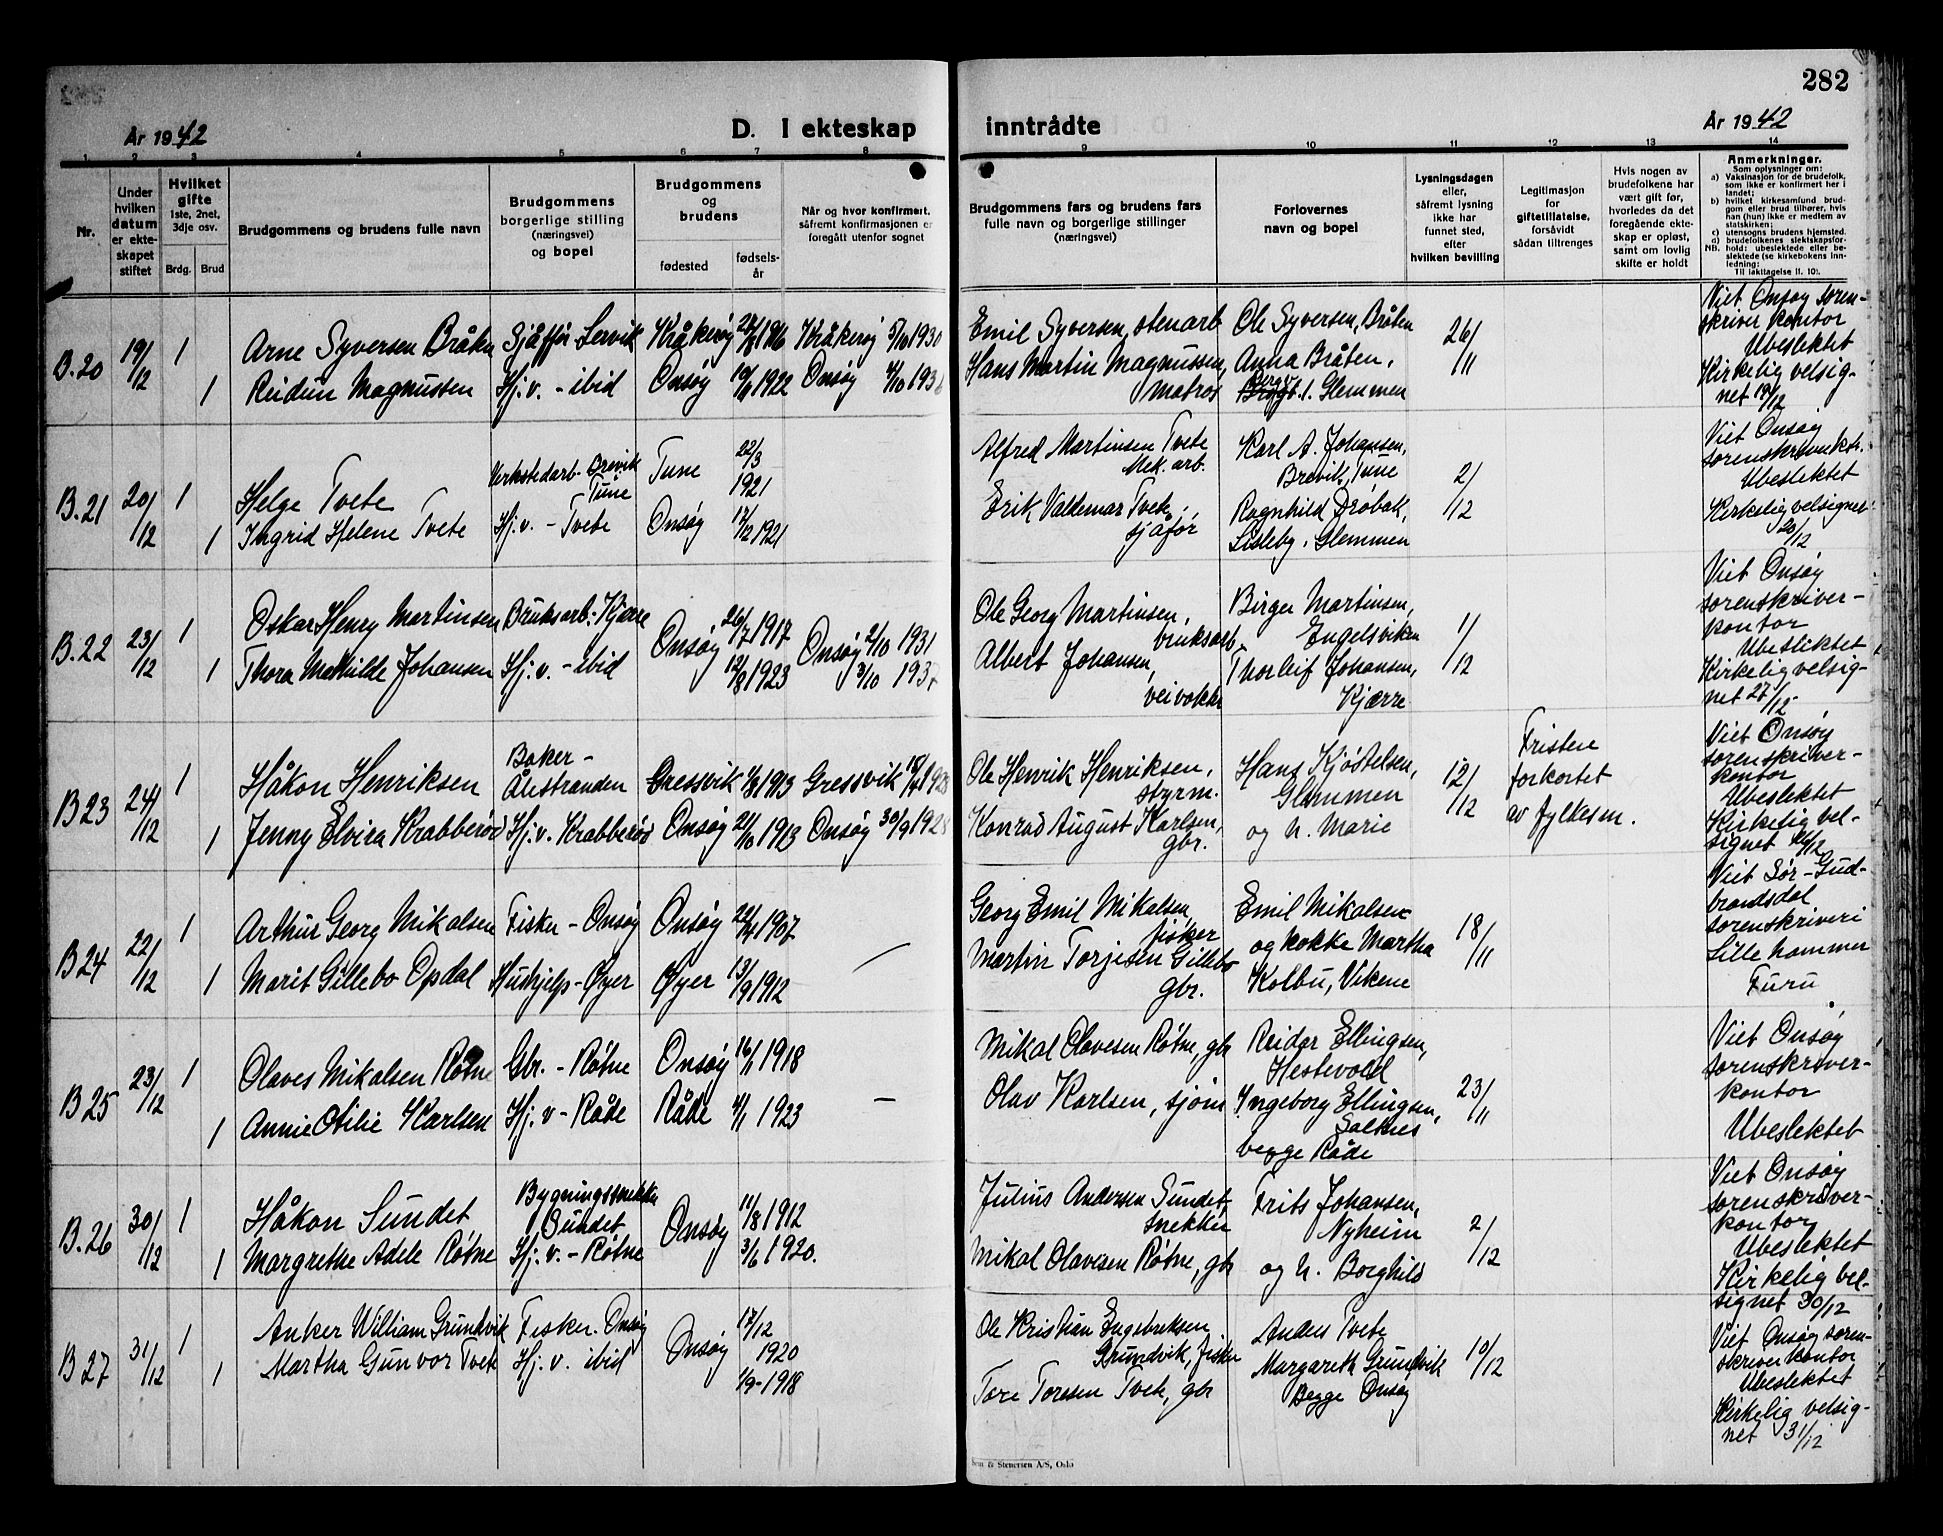 282
År 1942
D. I ekteskap inntrådte
År 1942
1 2 3 4 5 6 7 8 9 10 11 12 13 14
Nr.
Under hvilken datum er ekteskapet stiftet
Hvilket gifte
1ste, 2net, 3dje osv.
Brdg. Brud
Brudgommens og brudens fulle navn
Brudgommens borgerlige stilling (næringsvei) og bopel
Brudgommens og brudens
fødested
fødselsår
Når og hvor konfirmert, såfremt konfirmasjonen er foregått utenfor sognet
Brudgommens fars og brudens fars fulle navn og borgerlige stillinger (næringsvei)
Forlovernes navn og bopel
Lysningsdagen eller, såfremt lysning ikke har funnet sted, efter hvilken bevilling
Legitimasjon for giftetillatelse, forsåvidt sådan tiltrenges
Hvis nogen av brudefolkene har vært gift før, hvorledes da det foregående ekteskap er opløst, samt om lovlig skifte er holdt
Anmerkninger.
Som oplysninger om:
a) Vaksinasjon for de brudefolk, som ikke er konfirmert her i landet;
b) hvilket kirkesamfund brudgom eller brud tilhører, hvis han (hun) ikke er medlem av statskirken;
c) utensogns brudens hjemsted.
d) brudefolkenes slektskapsforhold: ubeslektede eller beslektede (se kirkebokens innledning:
NB. Til iakttagelse II. 10).
B.20 19/12 1 Arne Syversen Bråten Sjåffør - Lervik Kråkerøy 1916 Kråkerøy 5/10 1930 Emil Syversen, stenarb Ole Syversen, Bråten 26/11
1 Reidun Magnussen Hj.v. - ibid Onsøy 1922 Onsøy /10 193 Hans Martin Magnussen, matros Anna Bråten, Glemmen
Viet Onsøy sorenskriver kontor
Ubeslektet
Kirkelig velsignet 19/12
B.21 20/12 1 Helge Tvete Verkstedarb. Brevik Tune Tune 22/3 1921 Alfred Martinsen Tvete Mek. arb. Karl A. Johansen, Brevik, Tune 2/12
1 Ingrid Helene Tvete Hj.v. - Tvete Onsøy 17/2 1921 Erik Valdemar Tvete, sjåfør Ragnhild Drøbak, Lisleby, Glemmen
Viet Onsøy sorenskriverktr.
Ubeslektet
Kirkelig velsignet 20/12
B.22 23/12 1 Oskar Henry Martinsen Bruksarb. - Kjærre Onsøy 26/7 1917 Onsøy 2/10 1931 Ole Georg Martinsen, bruksarb. Birger Martinsen, Engelsviken 1/12
1 Thora Mathilde Johansen Hj.v. - ibid 12/8 1923 3/10 193 Albert Johansen, veivokter Thorleif Johansen, Kjærre
Viet Onsøy sorenskriverkontor
Ubeslektet
Kirkelig velsignet 27/12
B23 24/12 1 Håkon Henriksen Baker - Ålestranden Gressvik 1/8 1913 Gressvik 1928 Ole Henrik Henriksen, styrm. Hans Kjøstelsen, Glemmen 12/12 Fristen forkortet av fylkesm.
1 Jenny Elvira Krabberød Hj.v. Krabberød Onsøy 21/10 1913 Onsøy 30/9 1928 Konrad August Karlsen, gbr. og h. Marie
Viet Onsøy sorenskriverkontor
Ubeslektet
Kirkelig velsignet 26/12
B24 22/12 1 Arthur Georg Mikalsen Fisker - Onsøy Onsøy 22/4 1907 Georg Emil Mikalsen, fisker Emil Mikalsen 18/11
1 Marit Gillebo Opdal Hushjelp - Øyer Øyer 13/9 1912 Martin Torjesen Gillebo gbr. og kokke Martha Kolbu, Vikene
Viet Sør-Gudbrandsdal sorenskriveri Lillehammer
Furu
B25 23/12 1 Olaves Mikalsen Røtne Gbr. - Røtne Onsøy 16/1 1918 Mikal Olavesen Røtne, gbr Reidar Ellingsen, Hestevold 23/11
1 Annie Otilie Karlsen Hj.v - Råde Råde 4/1 1923 - Olav Karlsen, sjøm Ingeborg Ellingsen, begge Råde
Viet Onsøy sorenskriverkontor
Ubeslektet
B.26 30/12 1 Håkon Sundet Bygningssnekker Sundet Onsøy 11/8 1912 Julius Andersen Sundet, snekker Frits Johansen, Nyheim 2/12
1 Margrethe Adele Røtne Hj.v. - Røtne 3/6 1920. Mikal Olavesen Røtne, gbr og h. Borghild
Viet Onsøy sorenskriverkontor
Ubeslektet
Kirkelig velsignet 30/12
B27 31/12 1 Anker William Grundvik Fisker. Onsøy Onsøy 17/12 1920 Ole Kristian Engebretsen Grundvik, fisker Anders Tvete 10/12
1 Martha Gunvor Tvete Hj.v. ibid 1/9-1918 Tore Toresen Tvete, gbr Margareth Grundvik Begge Onsøy
Viet Onsøy sorenskriverkontor
Ubeslektet
Kirkelig velsignet 31/12
Sem & Stenersen A/S, Oslo